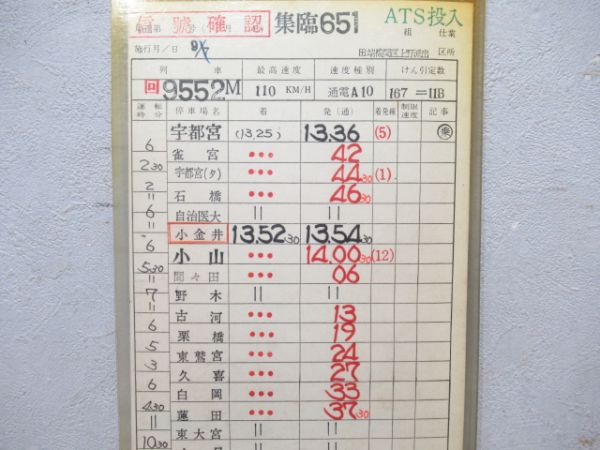 信號確認 集臨651 ATS投入
施行月/日 9/7 田端機関区上野派出 区所
列車 最高速度 速度種別 けん引定数
回9552M 110 KM/H 通電A10 167=11B
運転時分 停車場名 着 発(通) 着発線 制限速度 記事
宇都宮 (13.25) 13.36 (5) 乗
6 雀宮 ••• 42
2 30 宇都宮(タ) ••• 44 30 (1)
2 石橋 ••• 46 30
〃 自治医大 || ||
6 小金井 13.52 30 13.54 30
6 小山 ••• 14.00 30 (12)
5 30 間々田 ••• 06
〃 野木 || ||
7 古河 ••• 13
6 栗橋 ••• 19
5 東鷲宮 ••• 24
3 久喜 ••• 27
6 白岡 ••• 33
4 30 蓮田 ••• 37 30
|| 東大宮 || ||
10 30